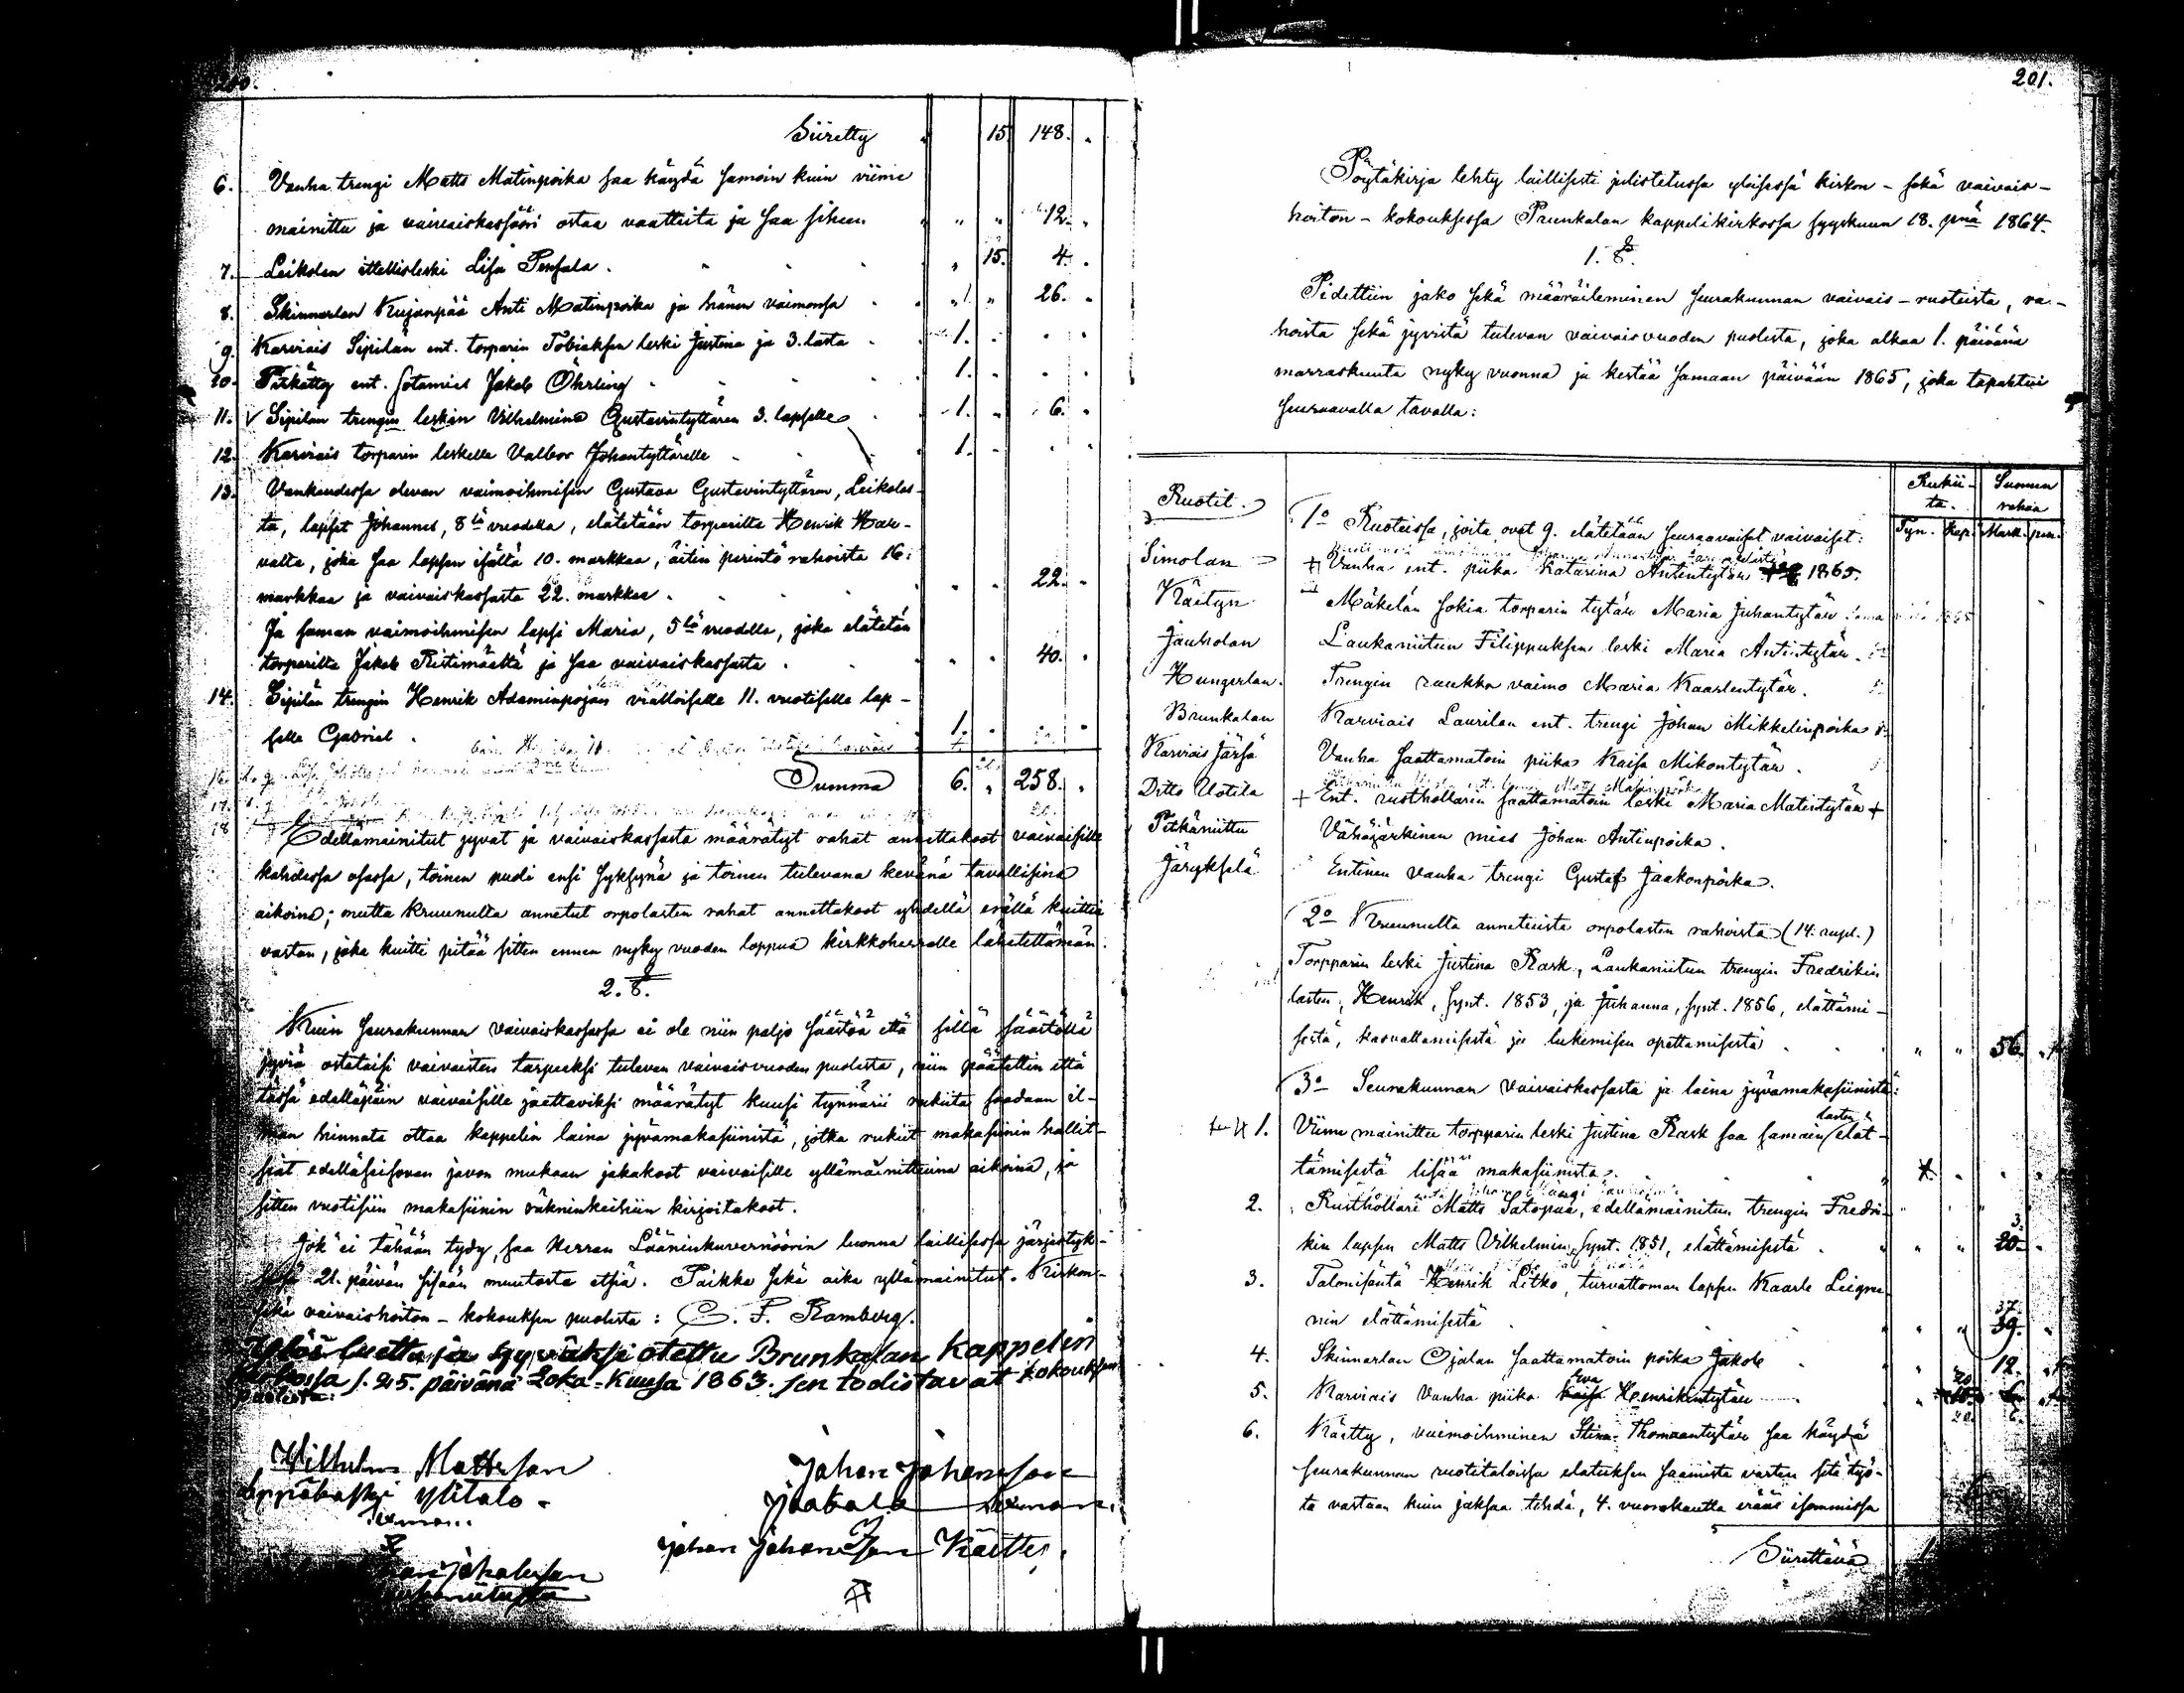 200.
Siiretty 15 148.
6. Vanha trengi Matts Matinpoika saa käydä samoin kuin viime
mainittu ja vaivaiskassööri ostaa vaatteita ja saa siheen 12.
7. Leikolan ittellisleski Lisa Penfala. 15. 4.
8. Skinnarlan Kujanpää Anti Matinpoika ja hänen vaimonsa 1. 26.
9. Karviais Sipilän ent. torparin Tobiaksen leski Justina ja 3. lasta 1.
10. Pitkätty ent. sotamies Jakob Öhrling 1.
11. Sipilän trengin leskin Vilhelmina Gustavintyttären 3. lapselle 1. 6.
12. Karviais torparin leskelle Valbor Johantyttärelle 1.
13. Vankeudessa olevan vaimoihmisen Gustava Gustavintyttären, Leikolas-
ta, lapset Johannes, 8tä vuodella, elätetään torparilta Henrik Har-
valta, joka saa lapsen isältä 10. markkaa, äitin perintö rahoista 16:
markkaa ja vaivaiskassasta 22. markkaa. 22.
Ja saman vaimoihmisen lapsi Maria, 5tä vuodella, joka elätetän
torparilta Jakob Ristimäeltä ja saa vaivaiskassasta 40.
14. Sipilän trengin Henrik Adaminpojan vialloiselle 11. vuotiselle lap-
selle Gabriel. 1.
Summa 6. 258.
Edellämainitut jyvat ja vaivaiskassasta määrätyt rahat annettakoot vaivaisille
kahdessa osassa, toinen puoli ensi syksynä ja toinen tulevana kevänä tavallisina
aikoina; mutta Kruunulta annetut orpolasten rahat annettakoot yhdellä erällä kuittia
vastan, joka kuitti pitää sitten ennen nyky vuoden loppua kirkkoherralle lähetettämän.
2. §.
Kuin seurakunnan vaivaiskassassa ei ole niin paljo säästöä että sillä säästöllä
jyviä ostetaisi vaivaisten tarpeeksi tulevan vaivaisvuoden puolesta, niin päätettiin että
tässä edelläpäin vaivaisille jaettaviksi määrätyt kuusi tynnärii rukiita saadaan il-
man hinnata ottaa kappelin laina jyvämakasiinistä, jotka rukiit makasiinin hallit-
siat edelläseisovan javon mukaan jakakoot vaivaisille yllämainittuina aikoina, ja
sitten vuotisiin makasiinin räkninkeihiin kirjoitakoot.
Jok' ei tähään tydy, saa Herran Lääninkuvernöörin luonna laillisessa järjestyk-
sessä 21. päivän sisään muutosta etsiä. Paikka sekä aika yllämainitut. Kirkon-
sekä vaivaishoiton-kokouksen puolesta: C. F. Ramberg.
Ylös luettu ja hyväksi otettu Brunkalan kappelin
kirkossa s. 25. päivänä Loka-Kuusa 1863. sen todistavat kokouksen
puolesta:
Wilhelm Mattsson Johan Johansson
Ylitalo Jaakola
Johan Johansson Käetty
201.
Pöytäkirja tehty laillisesti julistetussa yleisessä kirkon- sekä vaivais-
hoiton-kokouksessa Prunkalan kappelikirkossa syyskuun 18. pnä 1864.
1. §.
Pidettiin jako sekä määräileminen seurakunnan vaivais-ruoteista, ra-
hoista sekä jyvistä tulevan vaivaisvuoden puolesta, joka alkaa 1. päivänä
marraskuuta nyky vuonna ja kestää samaan päivään 1865, joka tapahtui
seuraavalla tavalla:
Ruotit. Rukii-ta. Suomen rahaa
Tyn. Kap. Mark. pen.
1o Ruoteissa, joita ovat 9. elätetään seuraavaiset vaivaiset:
Simolan Vanha ent. piika Katarina Antintytär 1865.
Käetyn Mäkelän Sokia torparin tytär Maria Juhantytär
Jauholan Laukaniitun Filippuksen leski Maria Antintytär.
Hungerlan. Trengin raukka vaimo Maria Kaarlentytär.
Brunkalan Karviais Laurilan ent. trengi Johan Mikkelinpoika
Karviais Järsä Vanha saattamatoin piika Kaisa Mikontytär.
Ditto Uotila Ent. rusthollarin saattamatoin leski Maria Matintytär
Pitkäniittu Vähäjärkinen mies Johan Antinpoika.
Järykselä Entinen vanha trengi Gustaf Jaakonpoika.
2o Kruunulta annetuista orpolasten rahoista (14. rupl.)
Torpparin leski Justina Rask, Laukaniitun trengin Fredrikin
lasten, Henrik, synt. 1853, ja Juhanna, synt. 1856, elättämi-
sestä, kasvattamisesta ja lukemisen opettamisesta 56.
3o Seurakunnan vaivaiskassasta ja laina jyvämakasiinista:
1. Viime mainittu torpparin leski Justina Rask saa samain lasten elät-
tämisestä lisää makasiinista.
2. Rusthollari Matts Satopää, edellämainitun trengin Fredri-
kin lapsen Matts Vilhelmin, synt. 1851, elättämisestä 20.
3. Talonisäntä Henrik Litko, turvattoman lapsen Kaarle Leigne-
nin elättämisestä 39.
4. Skinnarlan Ojalan saattamatoin poika Jakob 12.
5. Karviais Vanha piika Kaisa Eva Henrikintytär
6. Käetty, vaimoihminen Stina Thomaantytär saa käydä
seurakunnan ruotitaloissa elatuksen saamista varten sitä työ-
tä vastaan kuin jaksaa tehdä, 4. vuorokautta eräs isommissa
Siirettävä